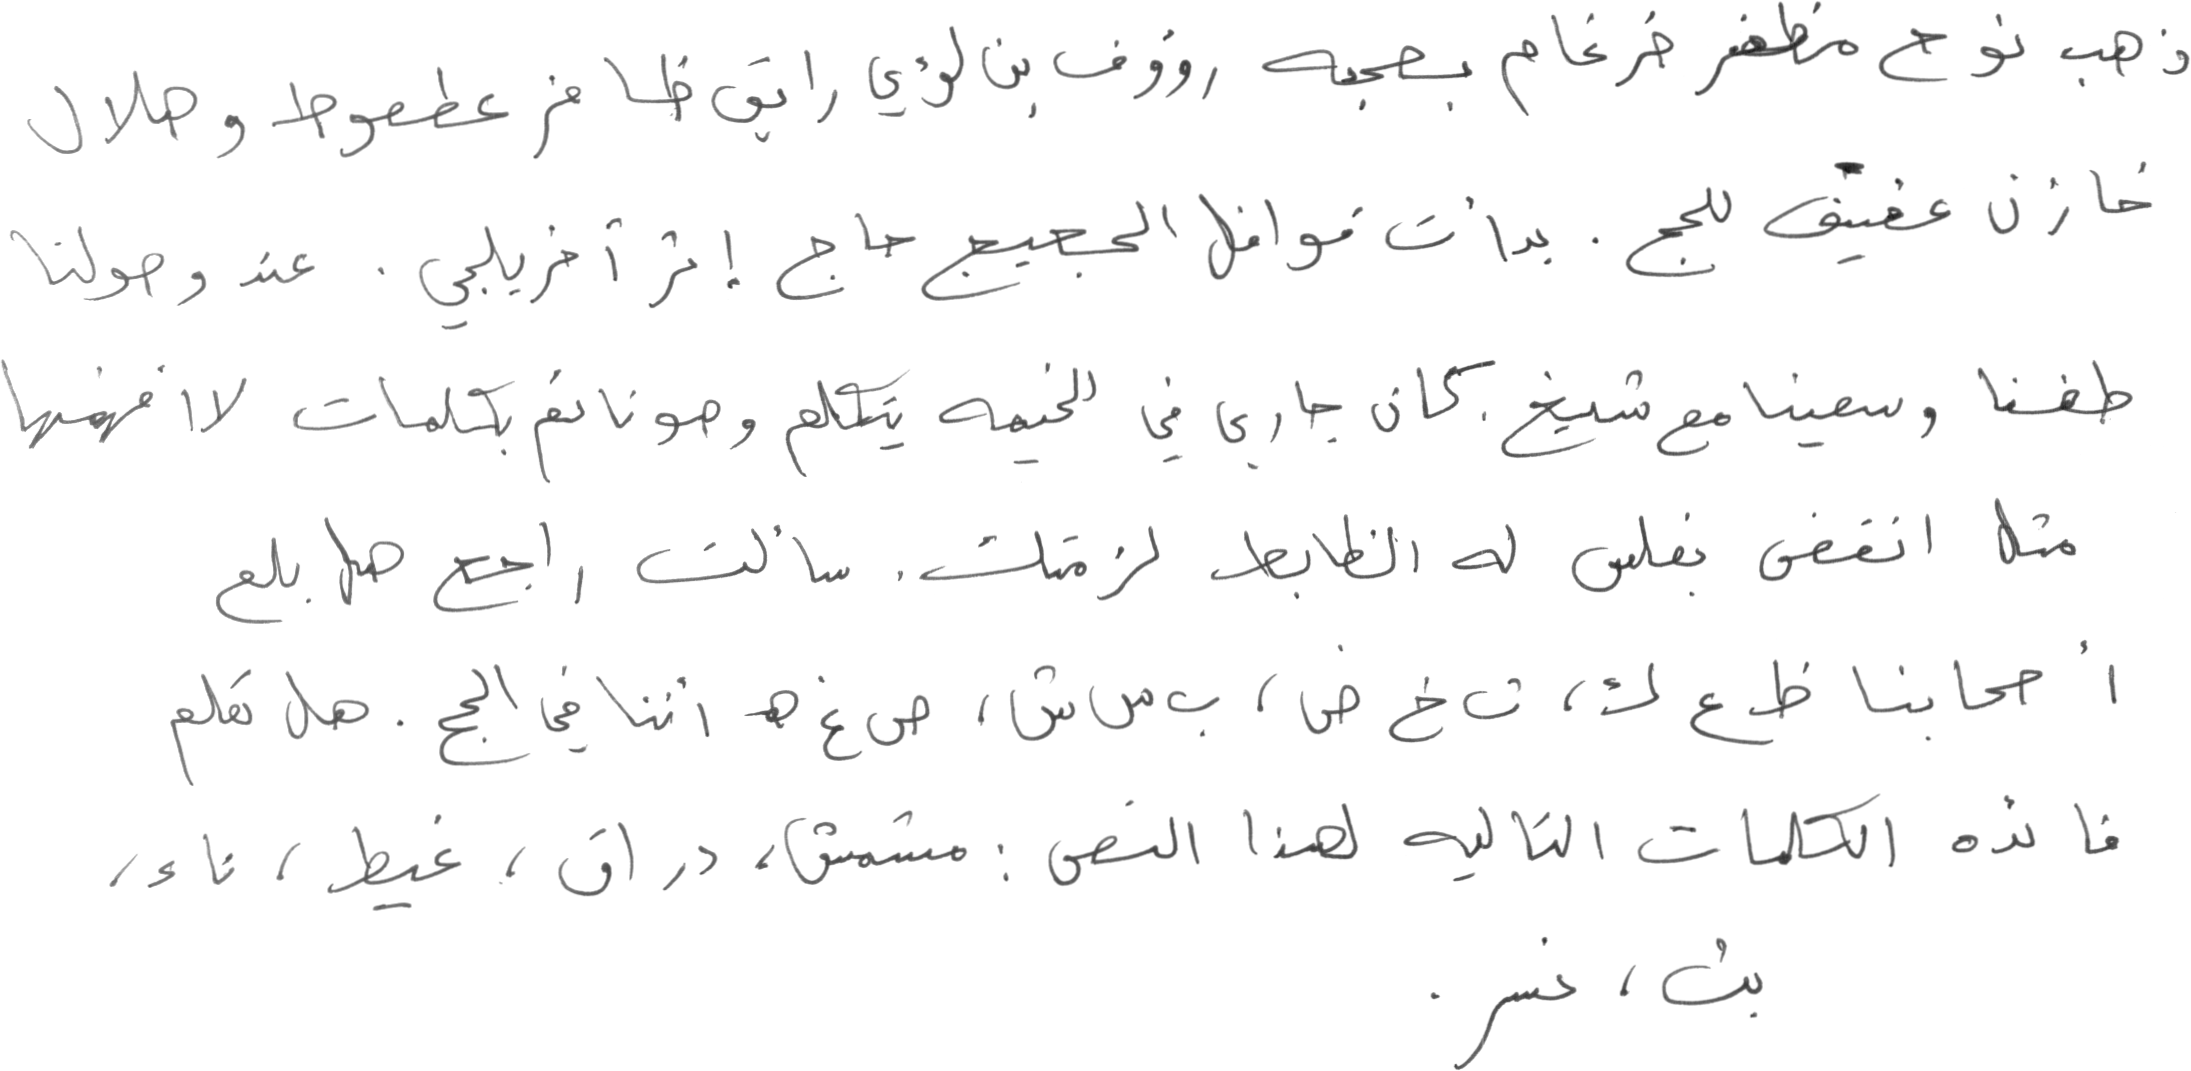 ذهب نوح مظفر ضرغام بصحبه رؤوف بن لؤي رايق ظافر عطعوط وهلال
خازن عفيف للحج . بدأت قوافل الحجيج حاج إثر آخر يلبي . عند وصولنا
طفنا وسعينا مع شيخ . كان جاري في الخيمه يتكلم وهو نائم بكلمات لا افهمها
مثل انقض بغلس له الظابط لزمتك . سألت راجح هل بلع
أصحابنا ظ ع ك ، ت خ ض ، ب س ش ، ص غ ه اننا في الحج . هل تعلم
فائده الكلمات التاليه لهذا النص : مشمش ، دراق ، غيظ ، ناء ،
بث ، خسر .